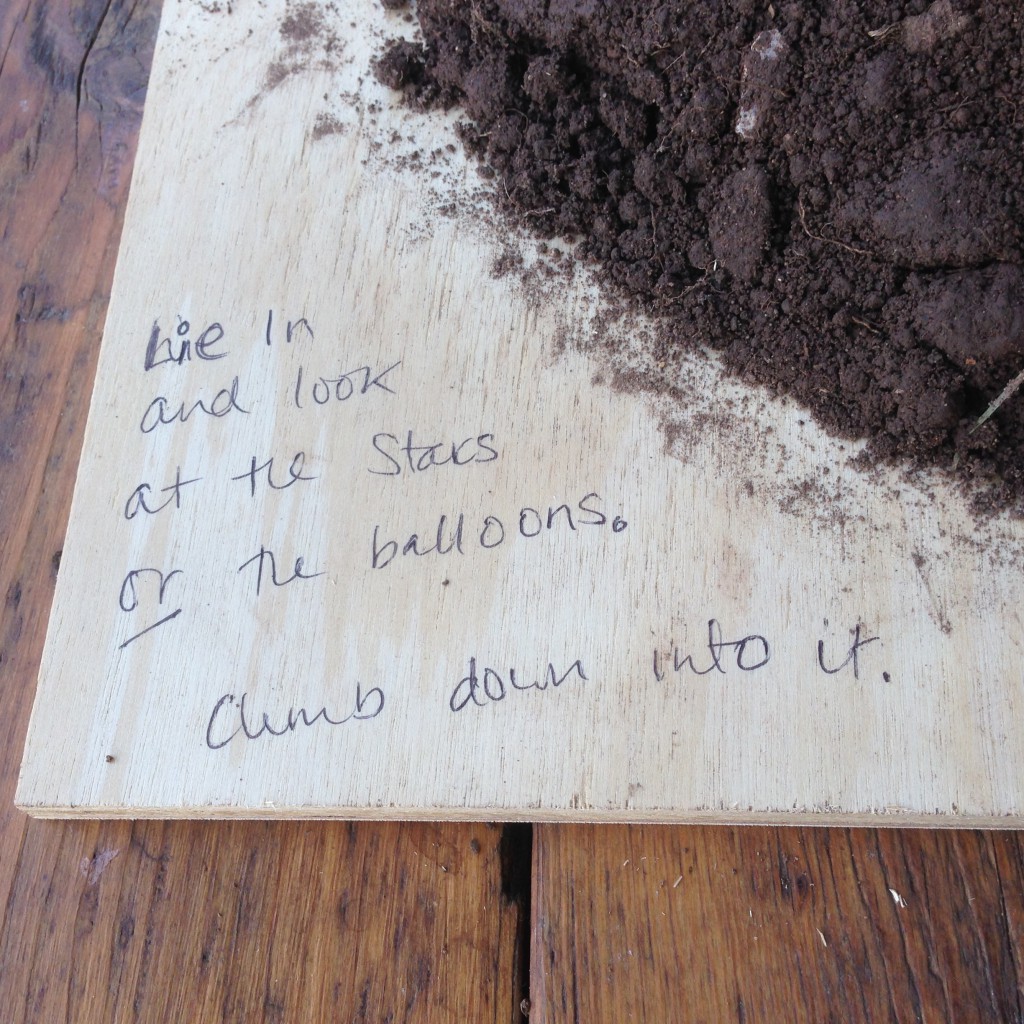 Lie In
and look
at the Stars
or the balloons.
Climb down into it.